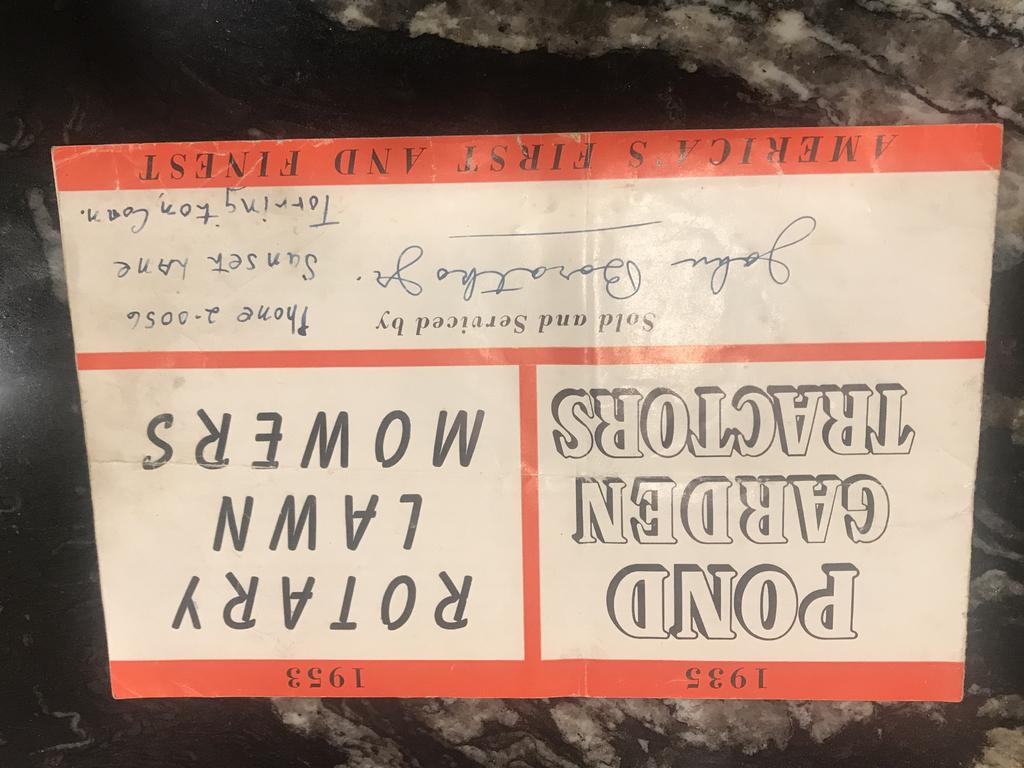 1935
1953
POND
GARDEN
TRACTORS
ROTARY
LAWN
MOWERS
Sold and Serviced by
Phone 2-0056
John Boratko Jr.
Sunset Lane
Torrington, Conn.
AMERICA'S FIRST AND FINEST